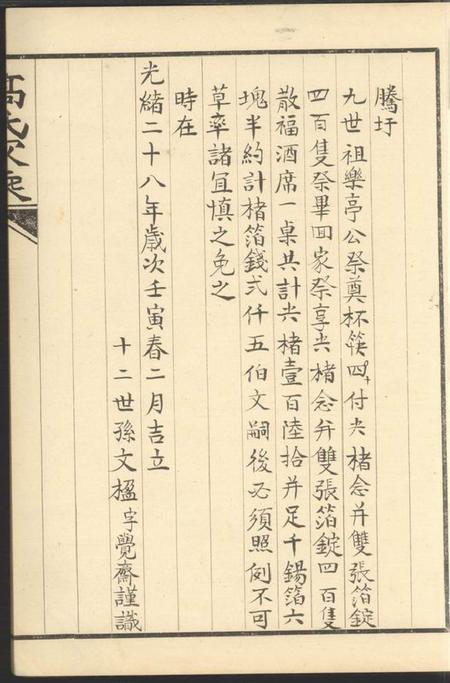 騰圩
九世祖樂亭公祭奠杯筷四十付大楮念并雙張箔錠
四百隻祭畢回家祭享大楮念并雙張箔錠四百隻
散福酒席一桌共計大楮壹百陸拾并足千錫箔六
塊半約計楮箔錢弍仟五伯文嗣後必須照例不可
草率諸宜慎之免之
時在
光緒二十八年歲次壬寅春二月吉立
十二世孫文楹字覺齋謹識
高氏家乘